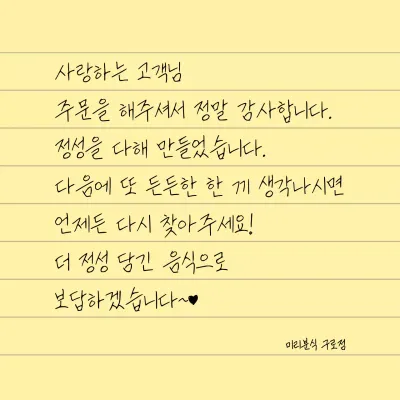 사랑하는 고객님
주문을 해주셔서 정말 감사합니다.
정성을 다해 만들었습니다.
다음에 또 든든한 한 끼 생각나시면
언제든 다시 찾아주세요!
더 정성 담긴 음식으로
보답하겠습니다~♥
미리분식 구로점